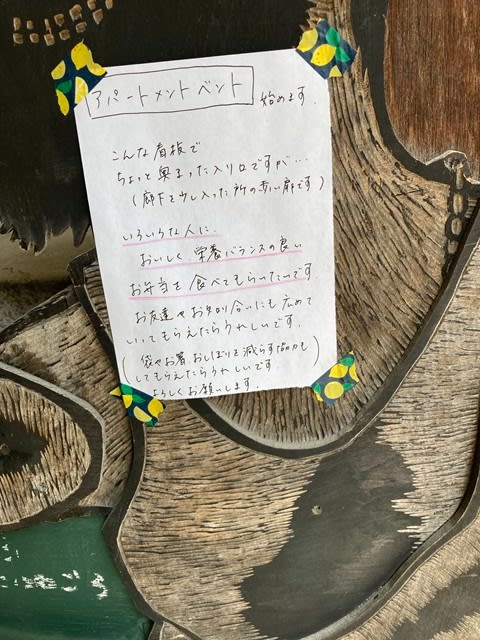 アパートメントベント 始めます.
こんな看板で
ちょっと奥まった入り口ですが…
(廊下を少し入った所の赤い扉です)
いろいろな人に、
おいしく栄養バランスの良い
お弁当を食べてもらいたいです
お友達やお知り合いにも広めて
いってもらえたらうれしいです.
(袋やお箸おしぼりを減らす協力も
してもらえたらうれしいです)
よろしくお願いします.